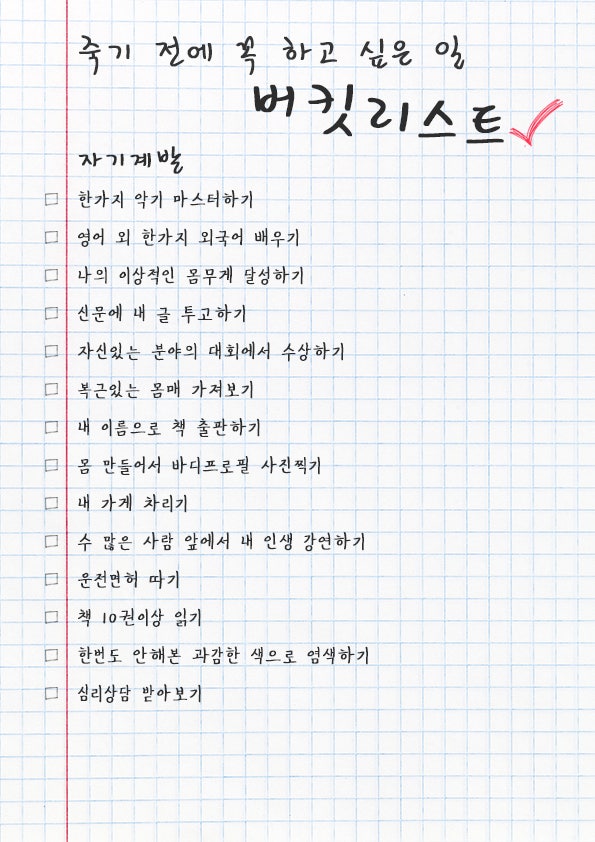 죽기 전에 꼭 하고 싶은 일
버킷리스트
자기계발
한가지 악기 마스터하기
영어 외 한가지 외국어 배우기
나의 이상적인 몸무게 달성하기
신문에 내 글 투고하기
자신있는 분야의 대회에서 수상하기
복근있는 몸매 가져보기
내 이름으로 책 출판하기
몸 만들어서 바디프로필 사진찍기
내 가게 차리기
수 많은 사람 앞에서 내 인생 강연하기
운전면허 따기
책 10권이상 읽기
한번도 안해본 과감한 색으로 염색하기
심리상담 받아보기